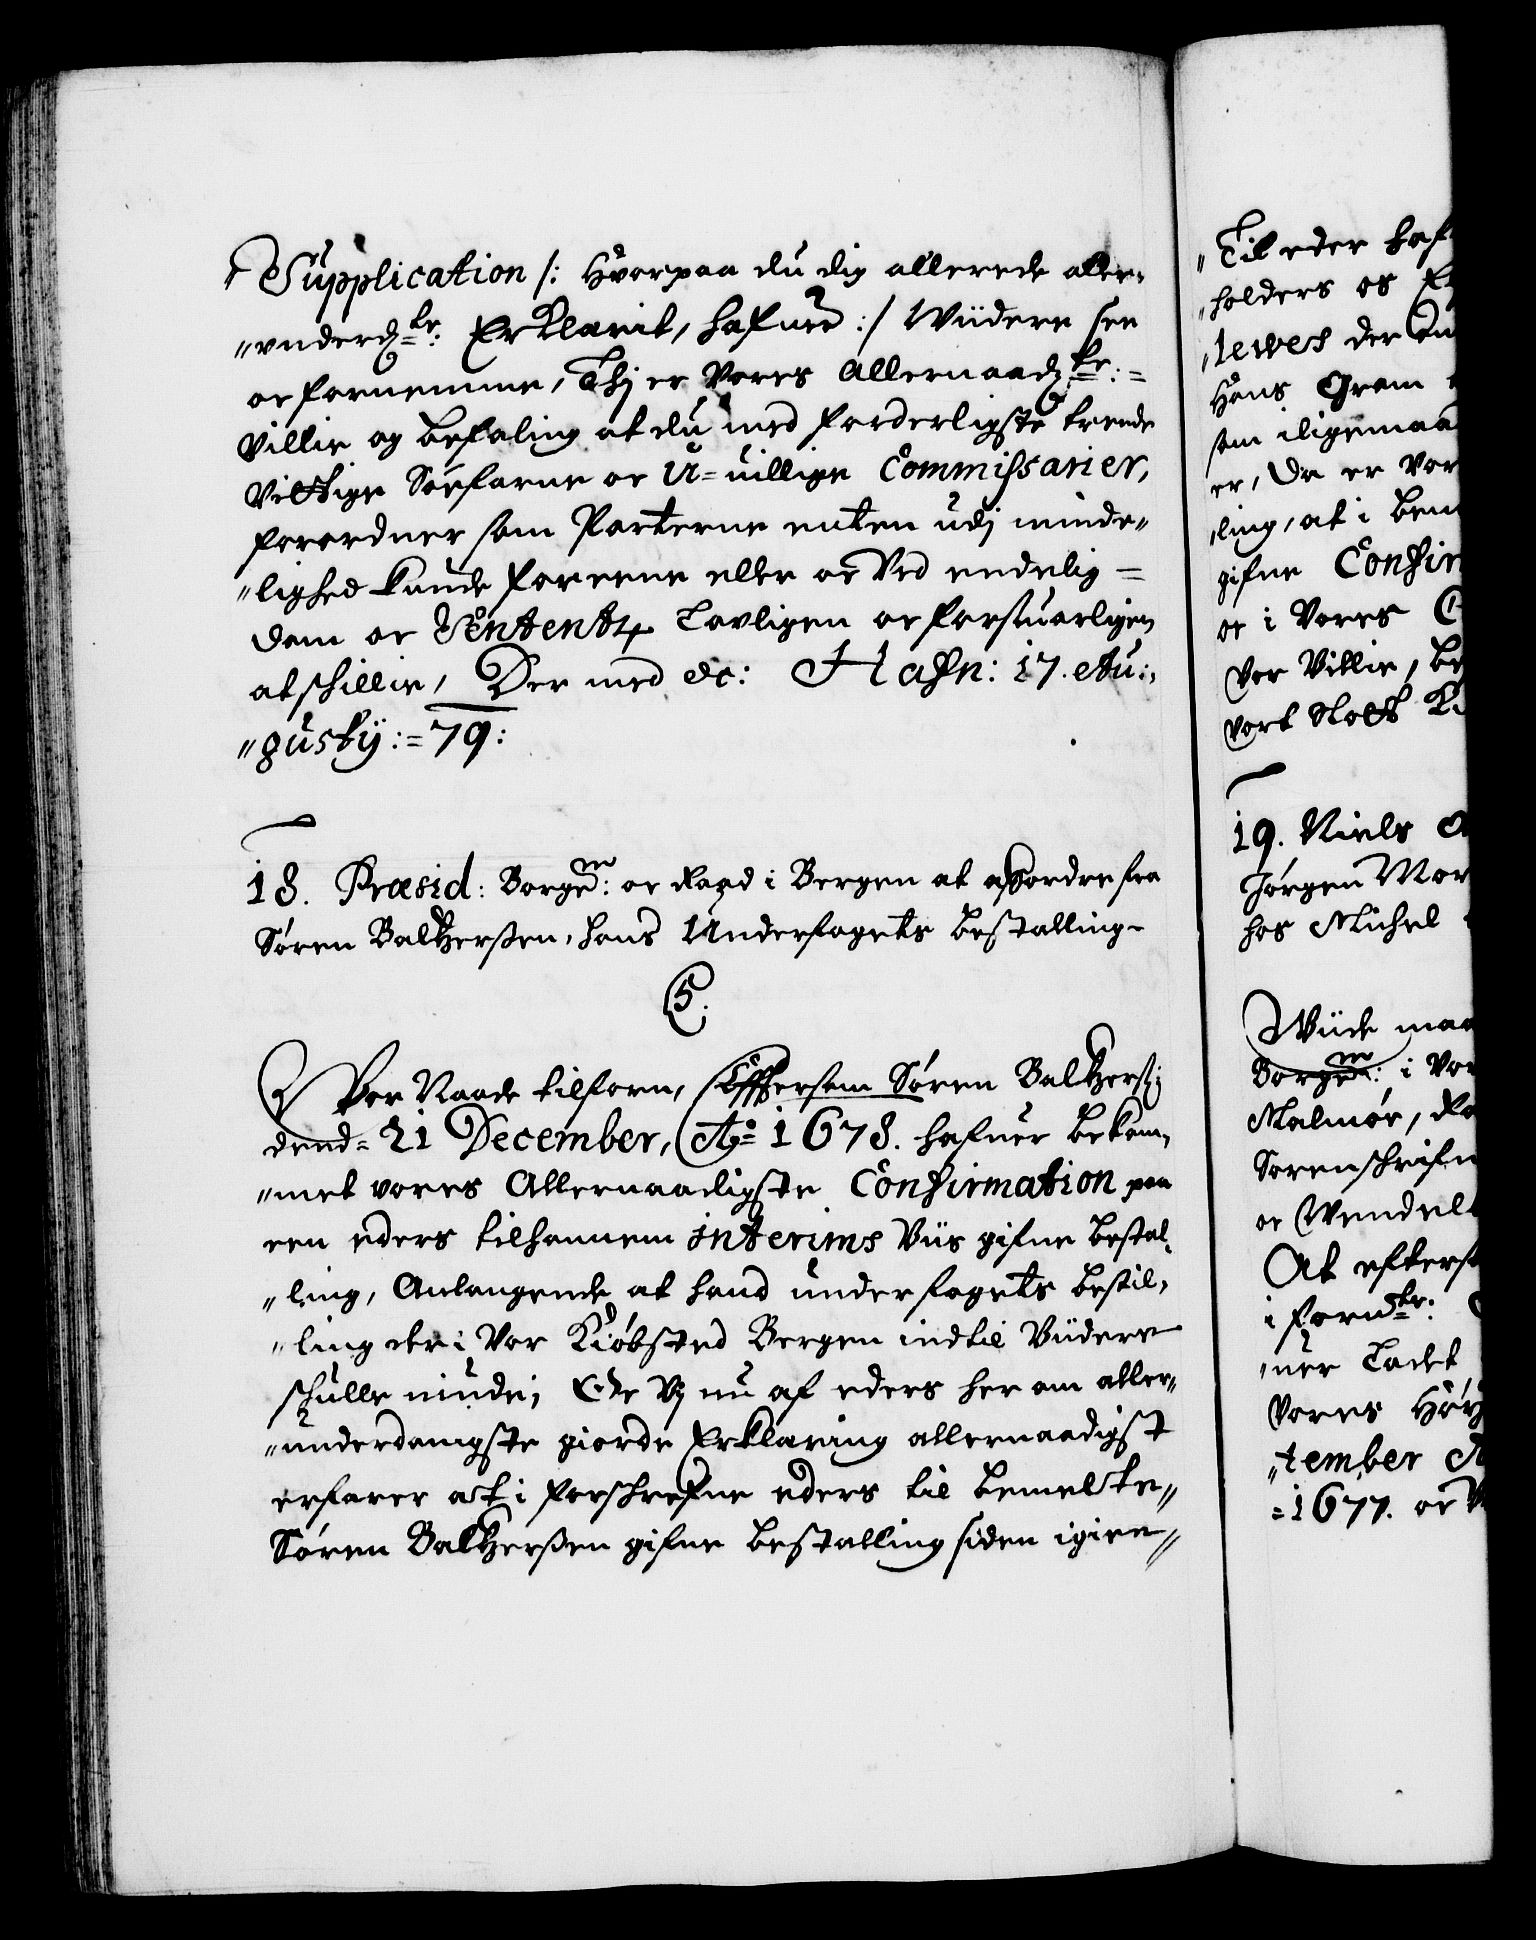 Supplication /: Hvorpaa du dig allerede aller-
"underdste: Erklærit, hafuer :/ Wiidere see
oc fornemme, Thj er Vores Allernaadste:=
Villie og befaling at du med forderligste trende
Vittige Søefarne oc U=uillige Commissarier,
forordner som Parterne enten udj minde"
"lighed kunde foreene eller oc Ved endelig=
dom oc Sententz Lovligen oc forsuarligen
atskillie, Der med &c: Hafn: 17. Au:,
"gusty:=79:
18. Præsid: Borgem: oc Raad i Bergen at affordre fra
Søren Baltzersen, hans Underfogets bestalling-
C5.
Vor Naade tilforn, Effersom Søren Baltzers:
dend= 21 December, Ao= 1678. hafuer bekom,
"met vores Allernaadigste Confirmation paa
een eders tilhannem interims Viis gifne bestal,
"ling, Anlangende at hand underfogets bestil,
"ling der i Vor Kiøbsted Bergen indtil Viidere
skulle niude; Och Vj nu af eders her om aller"
"underdanigste giorde Erklæring allernaadigst
erfarer att i forschrefne eders til bemelte"
Søren Baltzersen gifne bestalling siden igien"
"Til eder haf
"holders os
"lewes der
Hans Gram
som iligemaa
er, Da er Vor
"ling, at i bem
gifne Confir
oc i Vores
Vor Villie, be
Vort Slott
19. Niels
Jørgen Mor
hos Michel
Wiide maa
Borgem: i Vor
Malmøe,
Sorenschrifu
oc Wendel
At efters
i fornte:
"ner Ladet
Vores Høy
"tember
=1677. oc